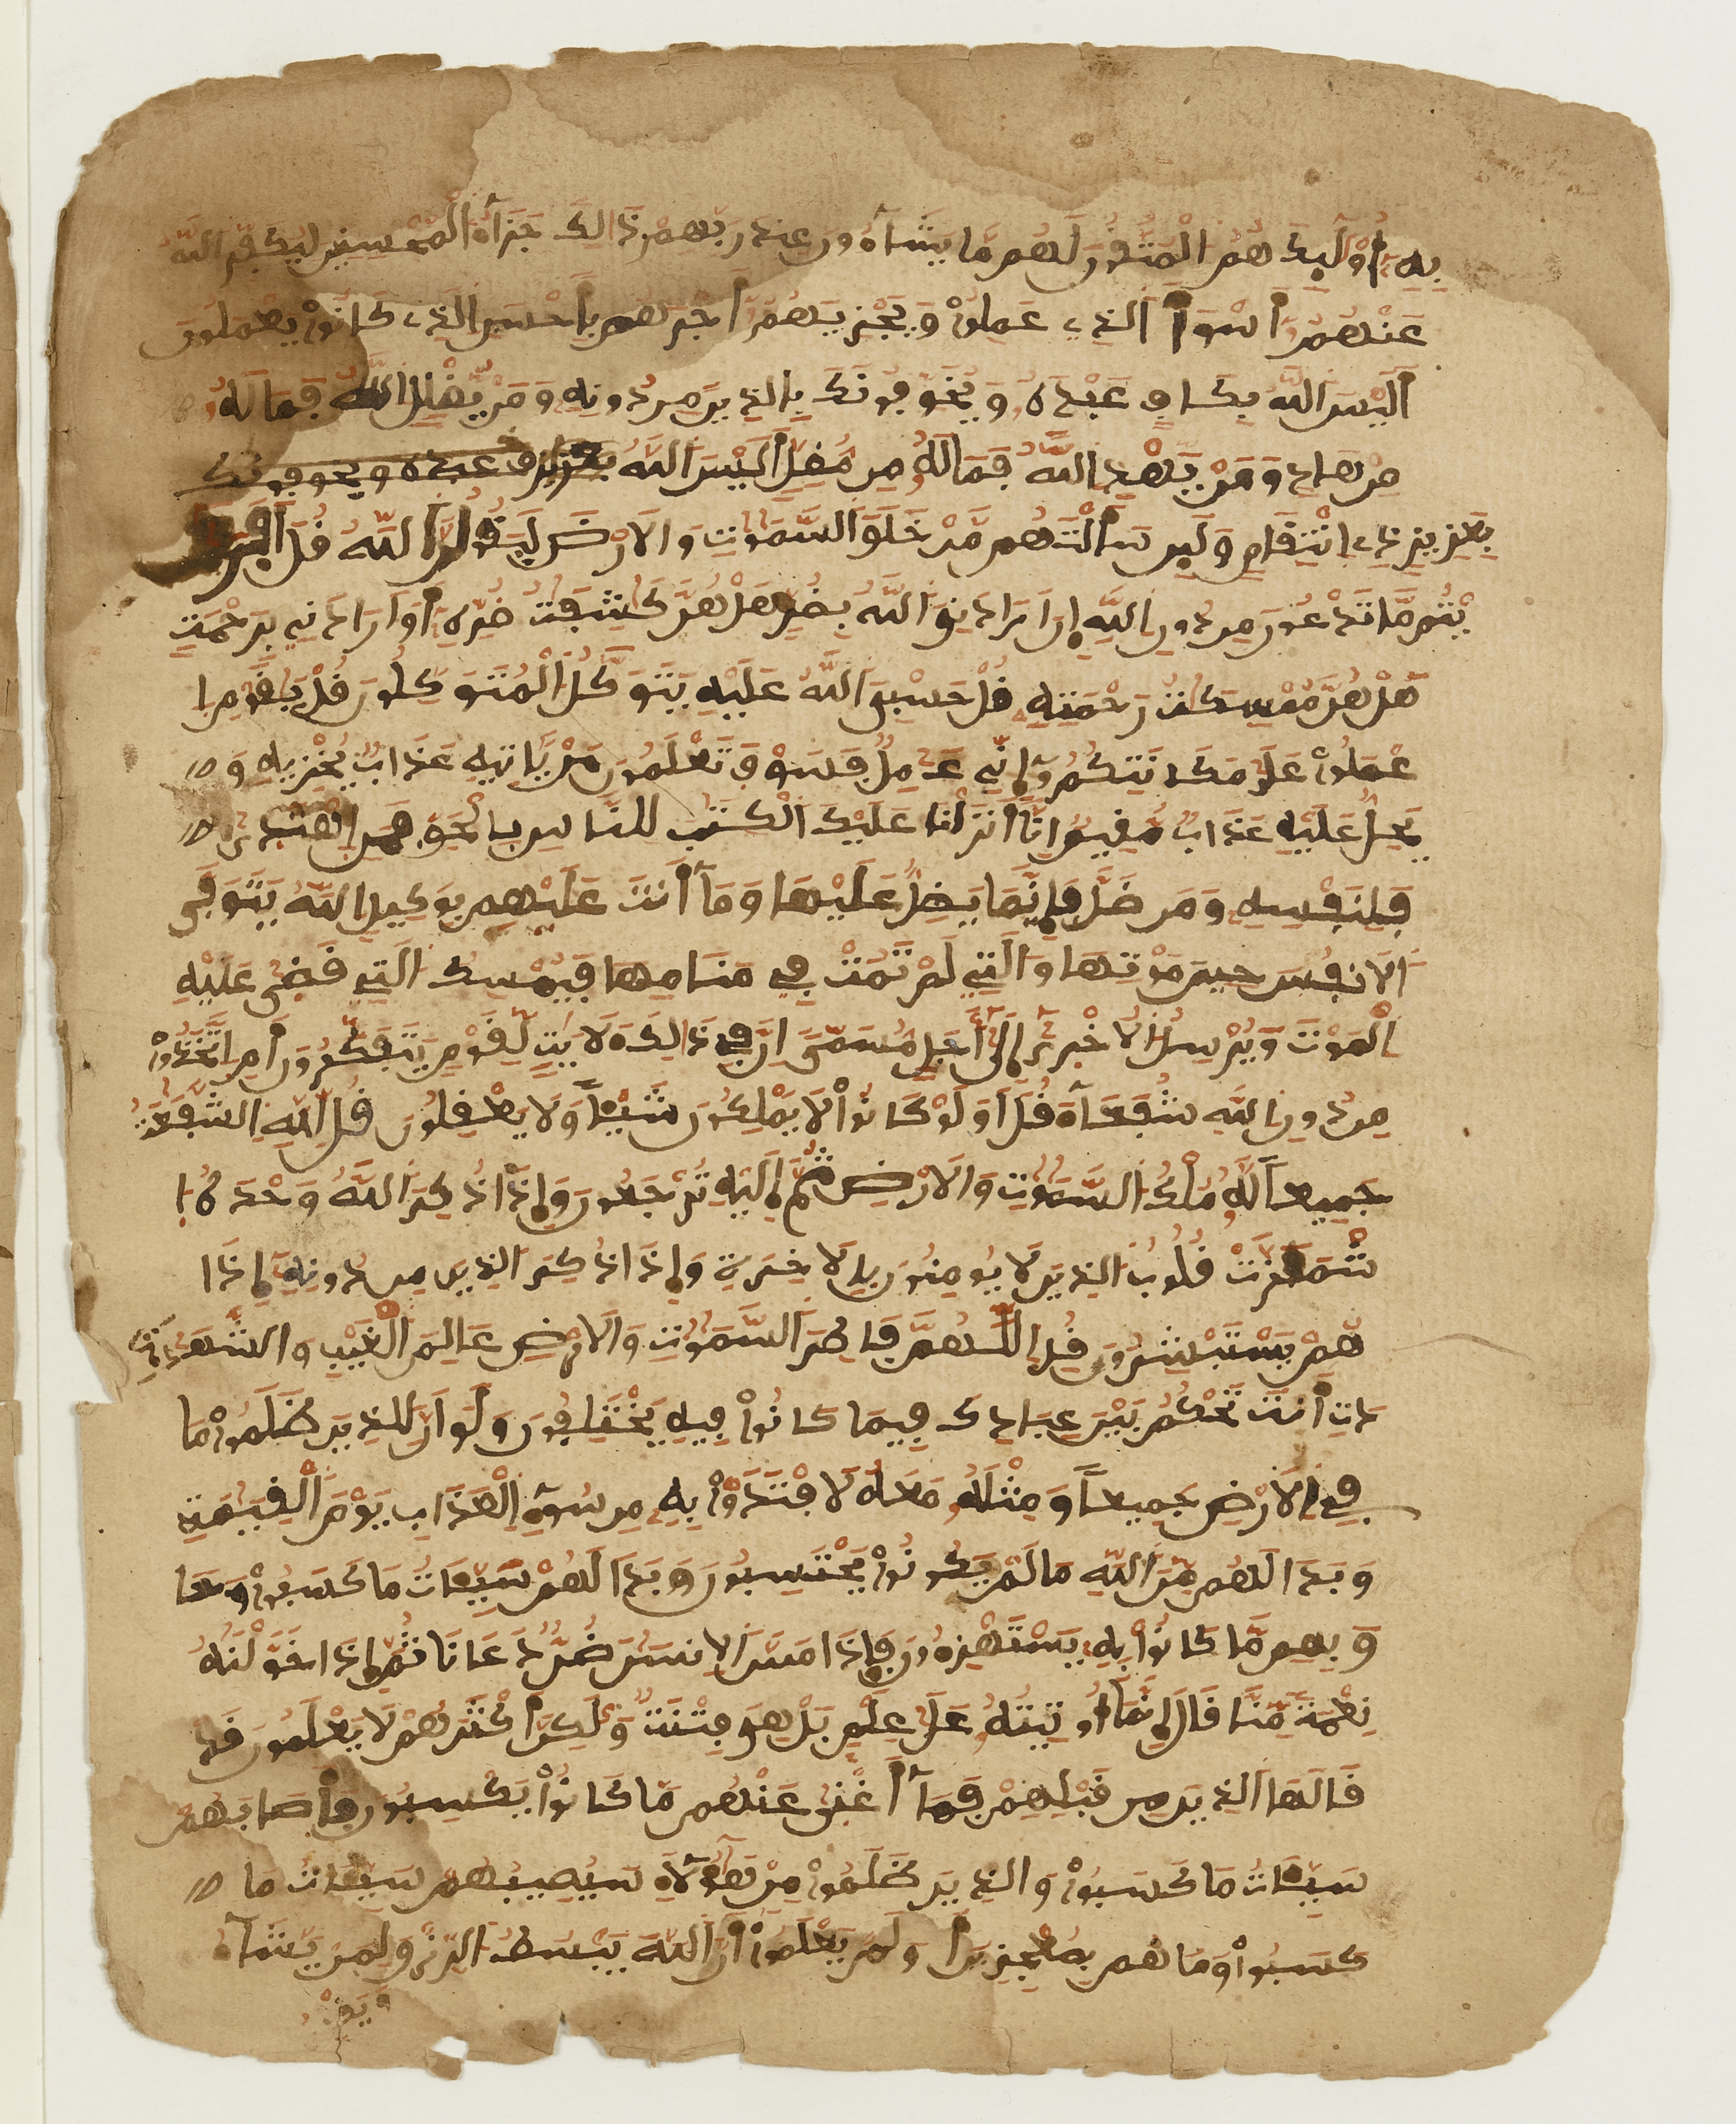 به أوليك هم المتقون لهم ما يشآء ون عند ربهم ذالك جزآؤا المحسنين ليكفر الله
عنهم أسوأ الذي عملوا ويجزيهم أجرهم بأحسن الذي كانوا يعملون
أليس الله بكاف عبده ويخوفونك بالذين من دونه ومن يضلل الله فما له
من هاد ومن يهد الله فما له من مضل أليس الله
بعزيز ذي انتقام ولين سألتهم من خلق السموت والارض ليقولن الله قل أفر
يتم ما تدعون من دون الله إن اراد ني الله بضر هل هن كشفت ضره أو اراد ني برحمت
هل هن ممسكت رحمته قل حسبي الله عليه يتوكل المتوكلون قل يقوم ا
عملوا على مكانتكم إني عمل فسوف تعلمون من ياتيه عذاب يخزيه و
يحل عليه عذاب مقيم إنا أنزلنا عليك الكتب للناس بالحق فمن اهتدى
فلنفسه ومن ضل فإنما يضل عليها ومآ أنت عليهم بوكيل الله يتوفى
الانفس حين موتها والتي لم تمت في منامها فيمسك التي قضى عليه
الموت ويرسل الاخرى إلى أجل مسمى ان في ذالك ءلايت لقوم يتفكرون أم اتخذوا
من دون الله شفعآء قل اولو كانوا لا يملكون شيئا ولا يعقلون قل لله الشفعة
جميعا له ملك السموت والارض ثم إليه ترجعون وإذا ذكر الله وحده ا
شمأزت قلوب الذين لا يومنون بالاخرة وإذا ذكر الذين من دونه إذا
هم يستبشرون قل اللهم فاطر السموت والارض عالم الغيب والشهد
دة أنت تحكم بين عبادك فيما كانوا فيه يختلفون ولو ان للذين ظلموا ما
في الارض جميعا ومثله معه لافتدوا به من سوء العذاب يوم القيمة
وبدا لهم من الله ما لم يكونوا يحتسبون وبدا لهم سيئات ما كسبوا وحا
ق بهم ما كانوا به يستهزءون فإذا مس الانسن ضر دعانا ثم إذا خولنه
نعمة منا قال إنمآ أوتيته على علم بل هي فتنة ولكن أكثرهم لا يعلمون قد
قالها الذين من قبلهم فمآ أغنى عنهم ما كانوا يكسبون فأصابهم
سيئات ما كسبوا والذين ظلموا من هؤلآء سيصيبهم سيئات ما
كسبوا وما هم بمعجزين أولم يعلموا أن الله يبسط الرزق لمن يشآء
ويقد